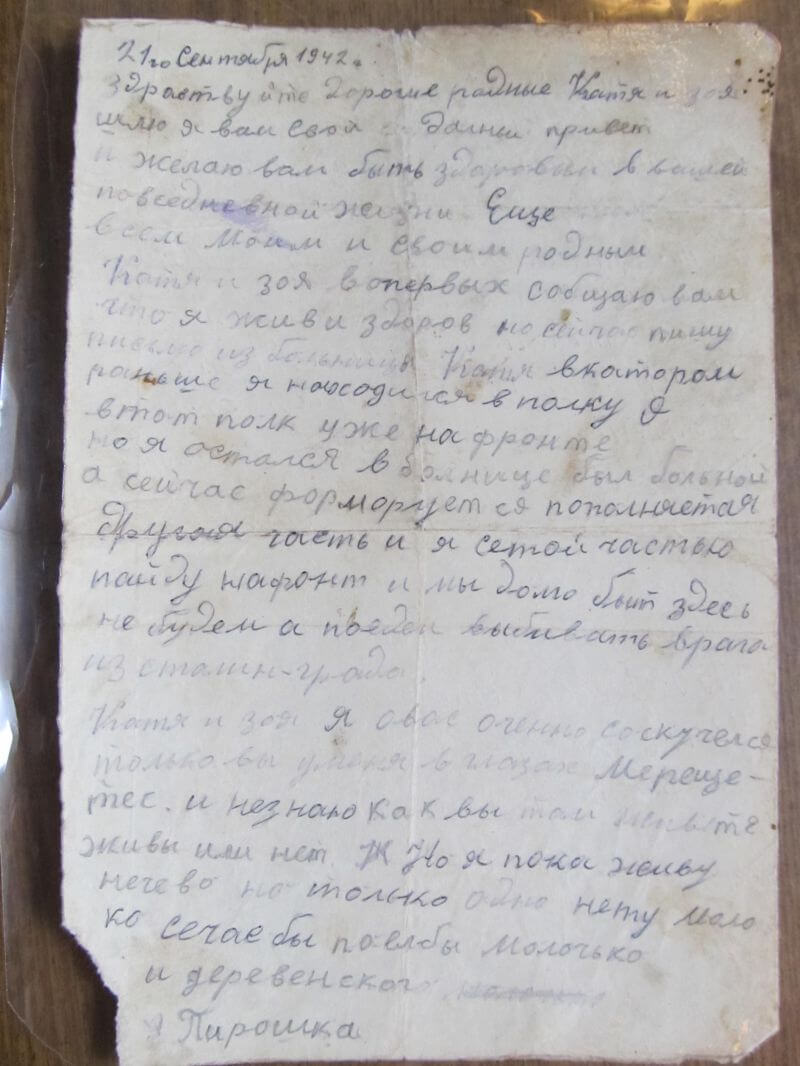 21го Сентября 1942 г.
здраствуйте Дорогие родные Катя и зоя
шлю я вам свой привет
и желаю вам быть здоровыи в вашей
повседневной жизни Еще
всем Моим и своим родным
Катя и зоя вопервых собщаю вам
что я жив и здоров но сейчас пишу
письмо из больницы Катя вкатором
раньше я находился в полку я
втот полк уже на фронте
но я остался в болнице был больной
а сейчас форморуется пополняетая
другая часть и я сетой частью
пайду нафонт и мы долго быт здесь
не будем а поедем выбивать врага
из сталин-града.
Катя и зоя я овас оченно соскучелся
только вы уменя в глазах Мереще-
тес. и незнаю как вы там живете
живы или нет. Но я пока живу
нечево но только одно нету моло
ко сечас бы поелбы молочько
и деревенского
Пирошка